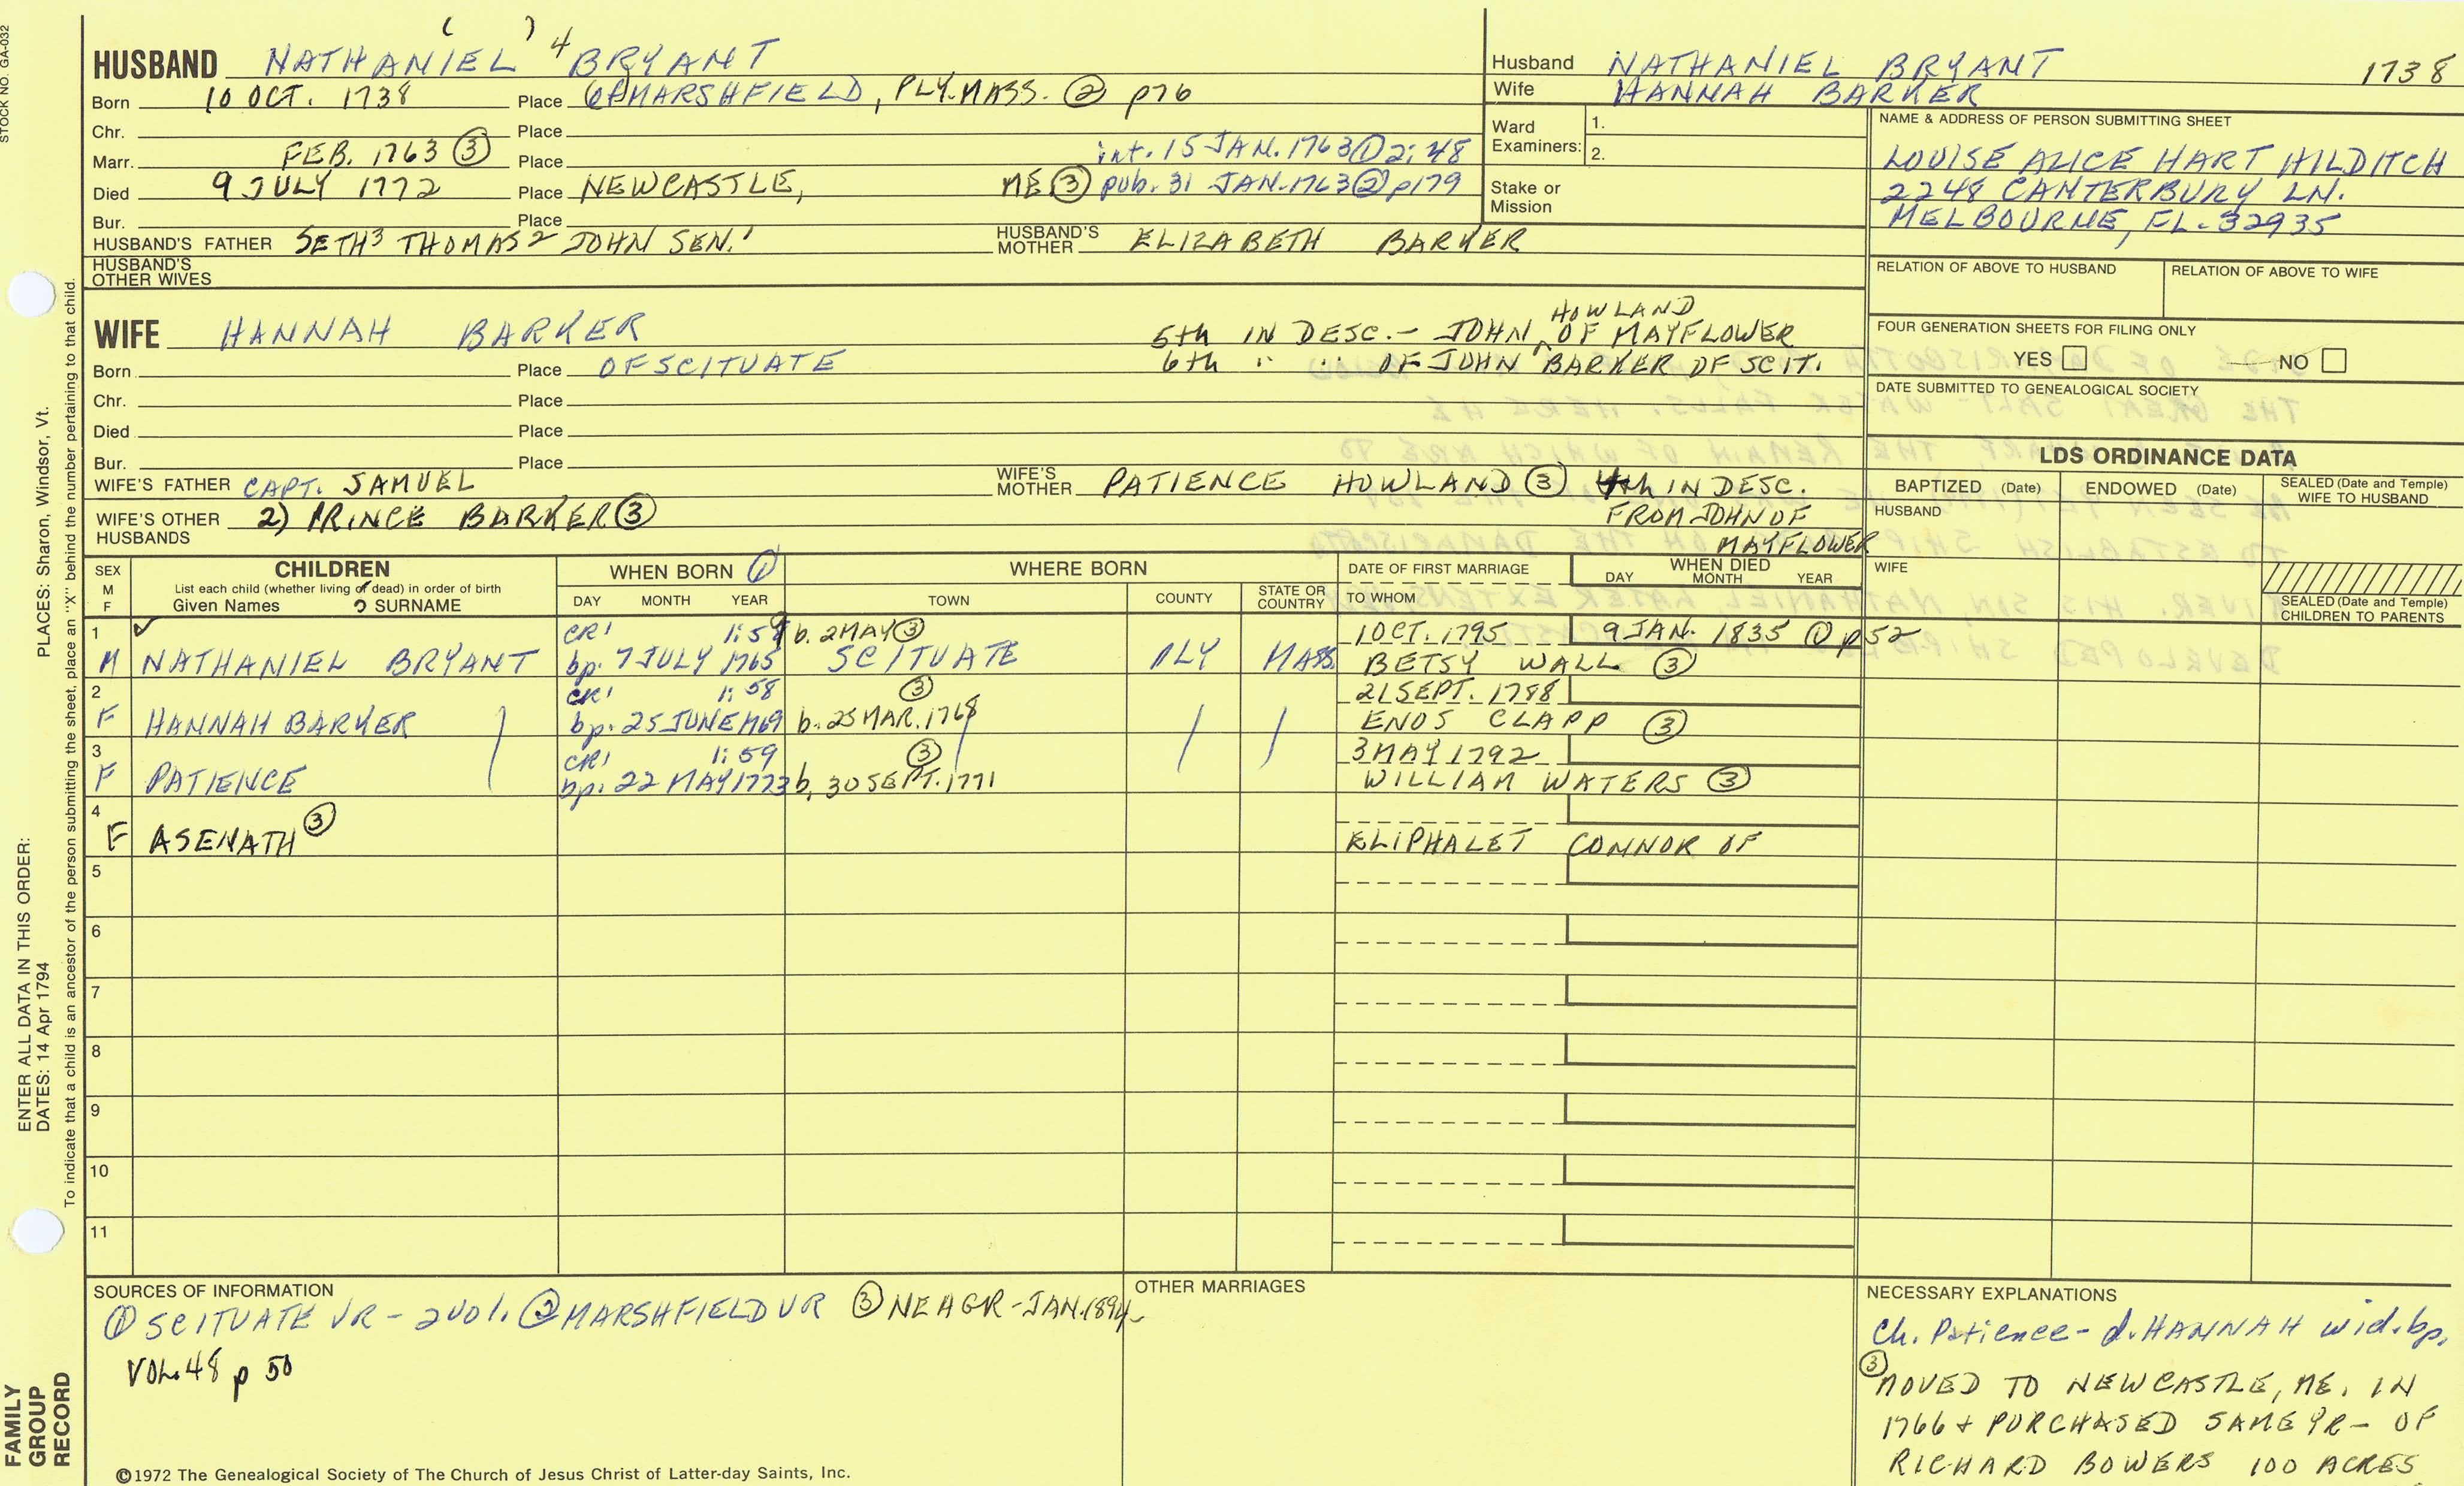 STOCK NO. GA-032
( ) 4
HUSBAND NATHANIEL BRYANT
Born 10 OCT. 1738 Place MARSHFIELD, PLY. MASS. ② p76
Chr. Place
Marr. FEB. 1763 ③ Place int. 15 JAN. 1763 ① 2:48
Died 9 JULY 1772 Place NEWCASTLE, ME ③ pub. 31 JAN. 1763 ② p179
Bur. Place
HUSBAND'S FATHER SETH³ THOMAS² JOHN SEN.¹ HUSBAND'S MOTHER ELIZABETH BARKER
HUSBAND'S OTHER WIVES
Husband NATHANIEL BRYANT 1738
Wife HANNAH BARKER
Ward Examiners: 1.
2.
Stake or Mission
NAME & ADDRESS OF PERSON SUBMITTING SHEET
LOUISE ALICE HART HILDITCH
2248 CANTERBURY LN.
MELBOURNE, FL. 32935
RELATION OF ABOVE TO HUSBAND RELATION OF ABOVE TO WIFE
FOUR GENERATION SHEETS FOR FILING ONLY
YES NO
DATE SUBMITTED TO GENEALOGICAL SOCIETY
WIFE HANNAH BARKER
HOWLAND
5th IN DESC. - JOHN ^ OF MAYFLOWER
Born Place OF SCITUATE 6th " " OF JOHN BARKER OF SCIT.
Chr. Place
Died Place
Bur. Place
WIFE'S FATHER CAPT. SAMUEL WIFE'S MOTHER PATIENCE HOWLAND ③ 4th IN DESC.
WIFE'S OTHER HUSBANDS 2) PRINCE BARKER ③ FROM JOHN OF
MAYFLOWER
LDS ORDINANCE DATA
BAPTIZED (Date) ENDOWED (Date) SEALED (Date and Temple) WIFE TO HUSBAND
HUSBAND
WIFE
SEALED (Date and Temple) CHILDREN TO PARENTS
SEX M F CHILDREN
List each child (whether living or dead) in order of birth
Given Names SURNAME
WHEN BORN ①
DAY MONTH YEAR
WHERE BORN
TOWN COUNTY STATE OR COUNTRY
DATE OF FIRST MARRIAGE
TO WHOM
WHEN DIED
DAY MONTH YEAR
1 CR1 1:59 b. 2 MAY ③ 1 OCT. 1795 9 JAN. 1835 ① p52
M NATHANIEL BRYANT bp. 7 JULY 1765 SCITUATE PLY MASS BETSY WALL ③
2 CR1 1:58 ③ 21 SEPT. 1788
F HANNAH BARKER bp. 25 JUNE 1769 b. 25 MAR. 1768 ENOS CLAPP ③
3 CR1 1:59 ③ 3 MAY 1792
F PATIENCE bp. 22 MAY 1773 b. 30 SEPT. 1771 WILLIAM WATERS ③
4
F ASENATH ③ ELIPHALET CONNOR OF
5
6
7
8
9
10
11
SOURCES OF INFORMATION
① SCITUATE VR - 2 vol. ② MARSHFIELD VR ③ NEAGR - JAN. 1894
VOL. 48 p 50
OTHER MARRIAGES
NECESSARY EXPLANATIONS
Ch. Patience - d. HANNAH wid. bp.
③
MOVED TO NEWCASTLE, ME. IN
1766 + PURCHASED SAME YR - OF
RICHARD BOWERS 100 ACRES
©1972 The Genealogical Society of The Church of Jesus Christ of Latter-day Saints, Inc.
ENTER ALL DATA IN THIS ORDER:
DATES: 14 Apr 1794 PLACES: Sharon, Windsor, Vt.
To indicate that a child is an ancestor of the person submitting the sheet, place an "X" behind the number pertaining to that child.
FAMILY
GROUP
RECORD